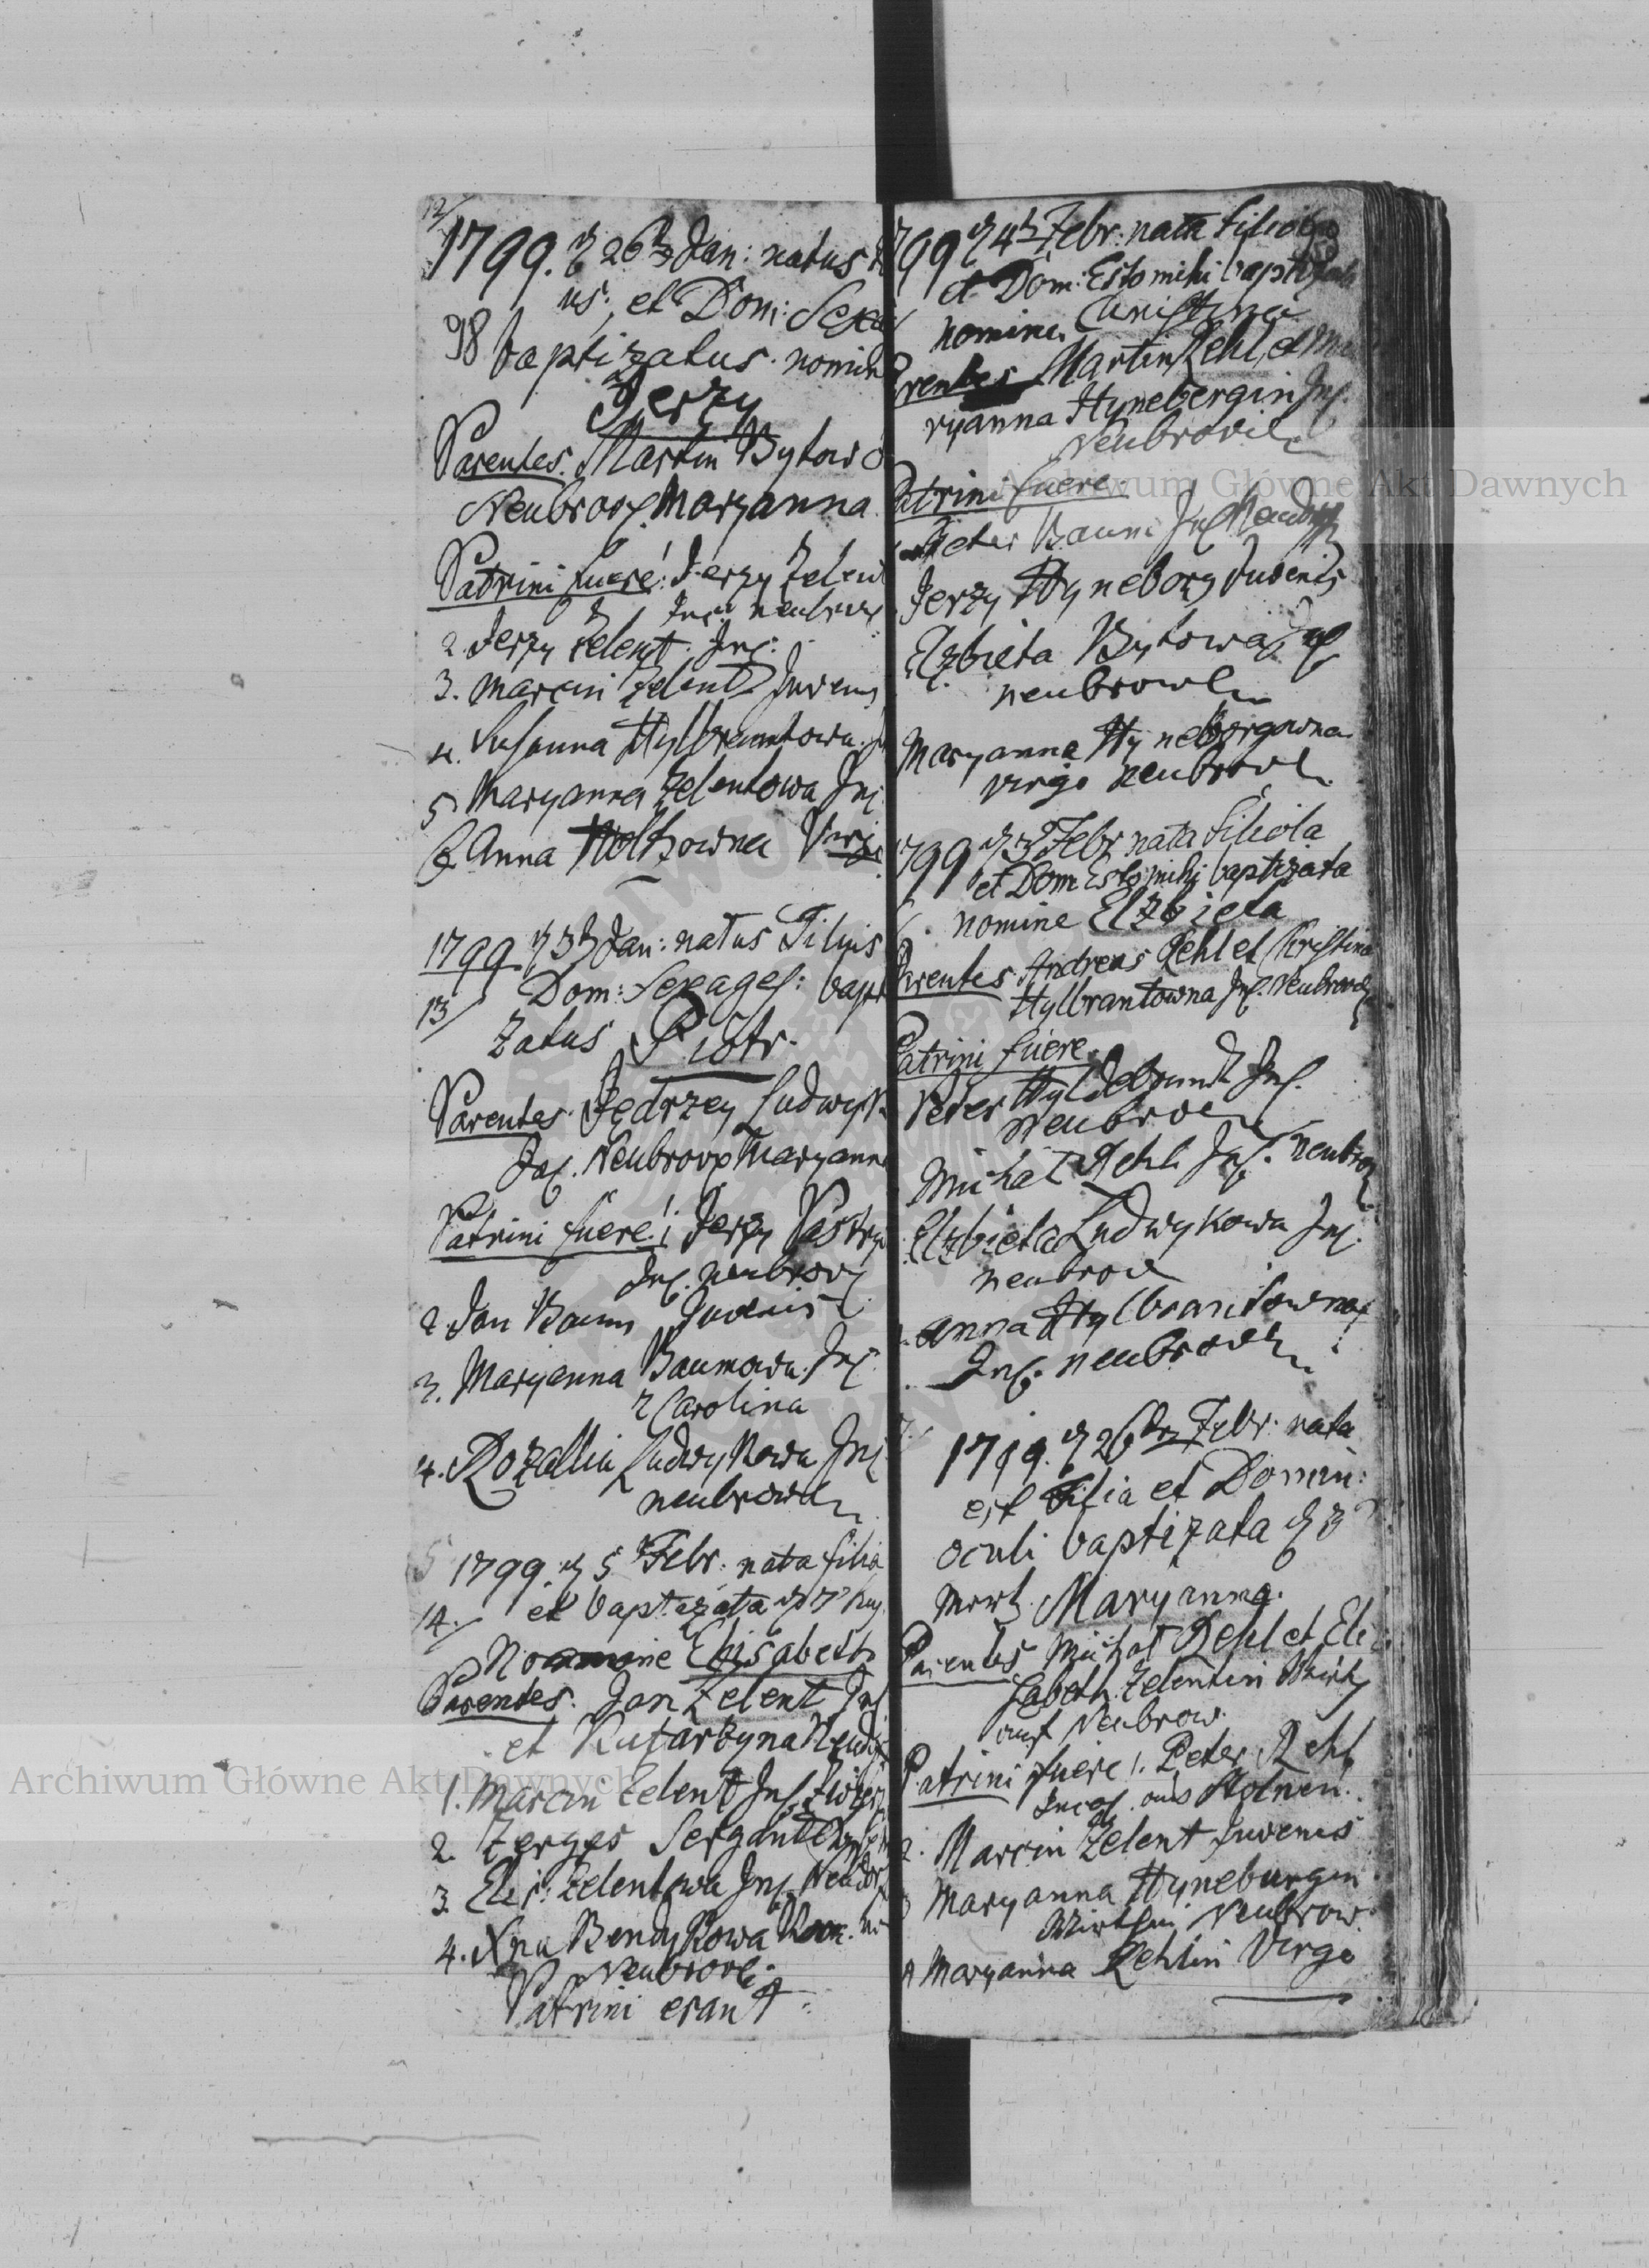 12/
1799. d 26 Jan: natus
us, et Dom: Sexa
98 baptizatus nomine
Jerzy
Parentes. Martin Bytow
Neubrow. Maryanna
Patrini fuere! Jerzy Zelent
Inq: neubrow
2. Jerzy Zelent. Inq:
3. Marcin Zelent Juvenis
4. Susanna Hylbrantowa
5. Maryanna Zelentowa Inq
6. Anna Holtzowna Virgo
1799. d 3 Jan: natus Filius
13/ Dom: Sexages: bapt
zatus Piotr.
Parentes. Jędrzey Ludwyk
Inq. Neubrow Maryanna
Patrini fuere! 1 Jerzy
Inq. neubrow
2. Jan Baum Juvenis
3. Maryanna Baumowa. Inq
2 Carolina
4. Rozallia Ludwykowa Inq
neubrow
1799. d 5 Febr: nata filia
14./ et baptizata d 7
Nomine Elisabeth
Parentes. Jan Zelent Inq
et Katarzyna
1. Marcin Zelent Inq.
2. Zerges Sergant
3. Elis: Zelentowa Inq
4. Xna Bendykowa
Neubrow
Patrini erant
799 d 4 Febr: nata filiola
et Dom: Estomihi baptizata
nomine Christina
Parentes Martin Rehl, et Ma
ryanna Hynebergin Inq.
Neubrow
Patrini fuere.
Peter Baum Inq
Jerzy Hyneborg Juvenis
Elzbieta Bytowa Inq
neubrow
Maryanna Hyneborgowna
virgo neubrow
1799 d 3 Febr nata filiola
et Dom Estomihi baptizata
nomine Elzbieta
Parentes Andreas Rehl et Christina
Hylbrantowna Inq. Neubrow
Patrini fuere.
Peter Hyldebrandt Inq.
neubrow
Michał Rehl Inq. neubrow
Elzbieta Ludwykowa Inq.
neubrow
anna Hylbrantowna
Inq. neubrow
1799. d 26 Febr. nata
est Filia et Domin:
oculi baptizata d 3
Martz. Maryanna.
Parentes Michał Rehl et Eli
sabeth. Zelentin Wirth
auf Neubrow.
Patrini fuere 1. Peter Rehl
aus
2. Marcin Zelent Juvenis
3 Maryanna Hyneburgin
Wirthin Neubrow.
4 Maryanna Rehlin Virgo
Archiwum Główne Akt Dawnych
Archiwum Główne Akt Dawnych